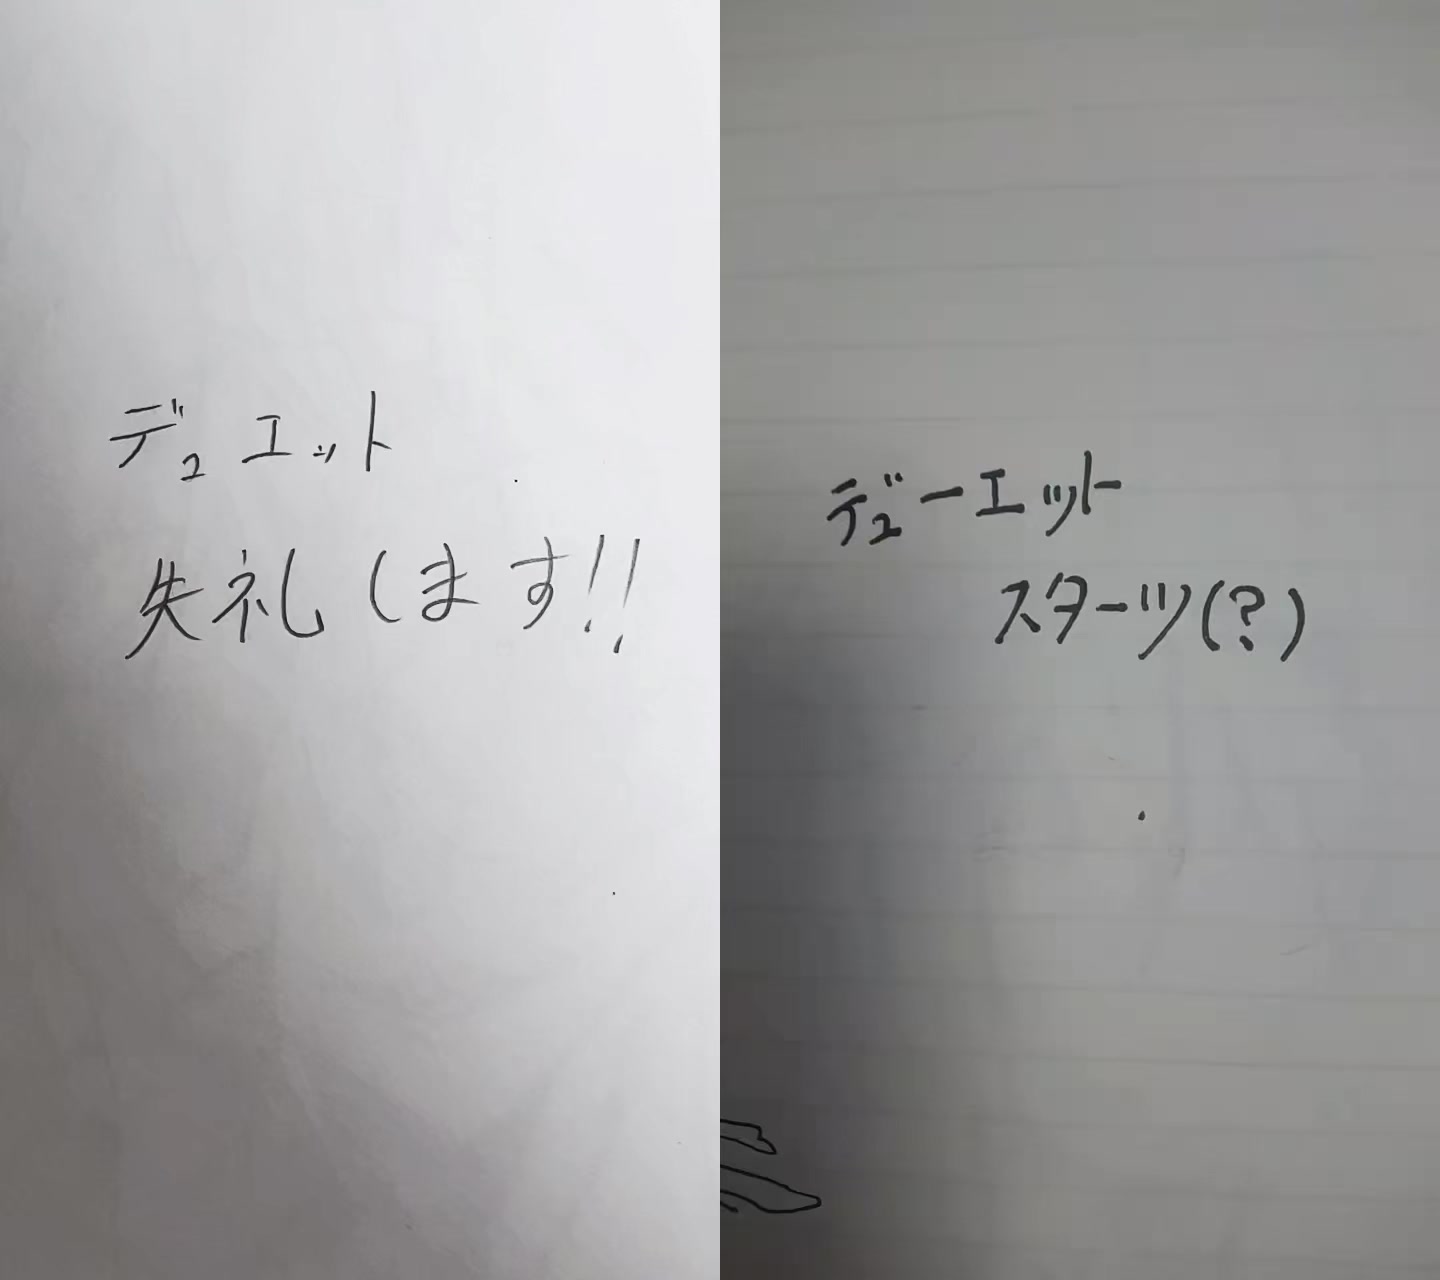 デュエット
失礼します!!
デューエット
スターツ(?)